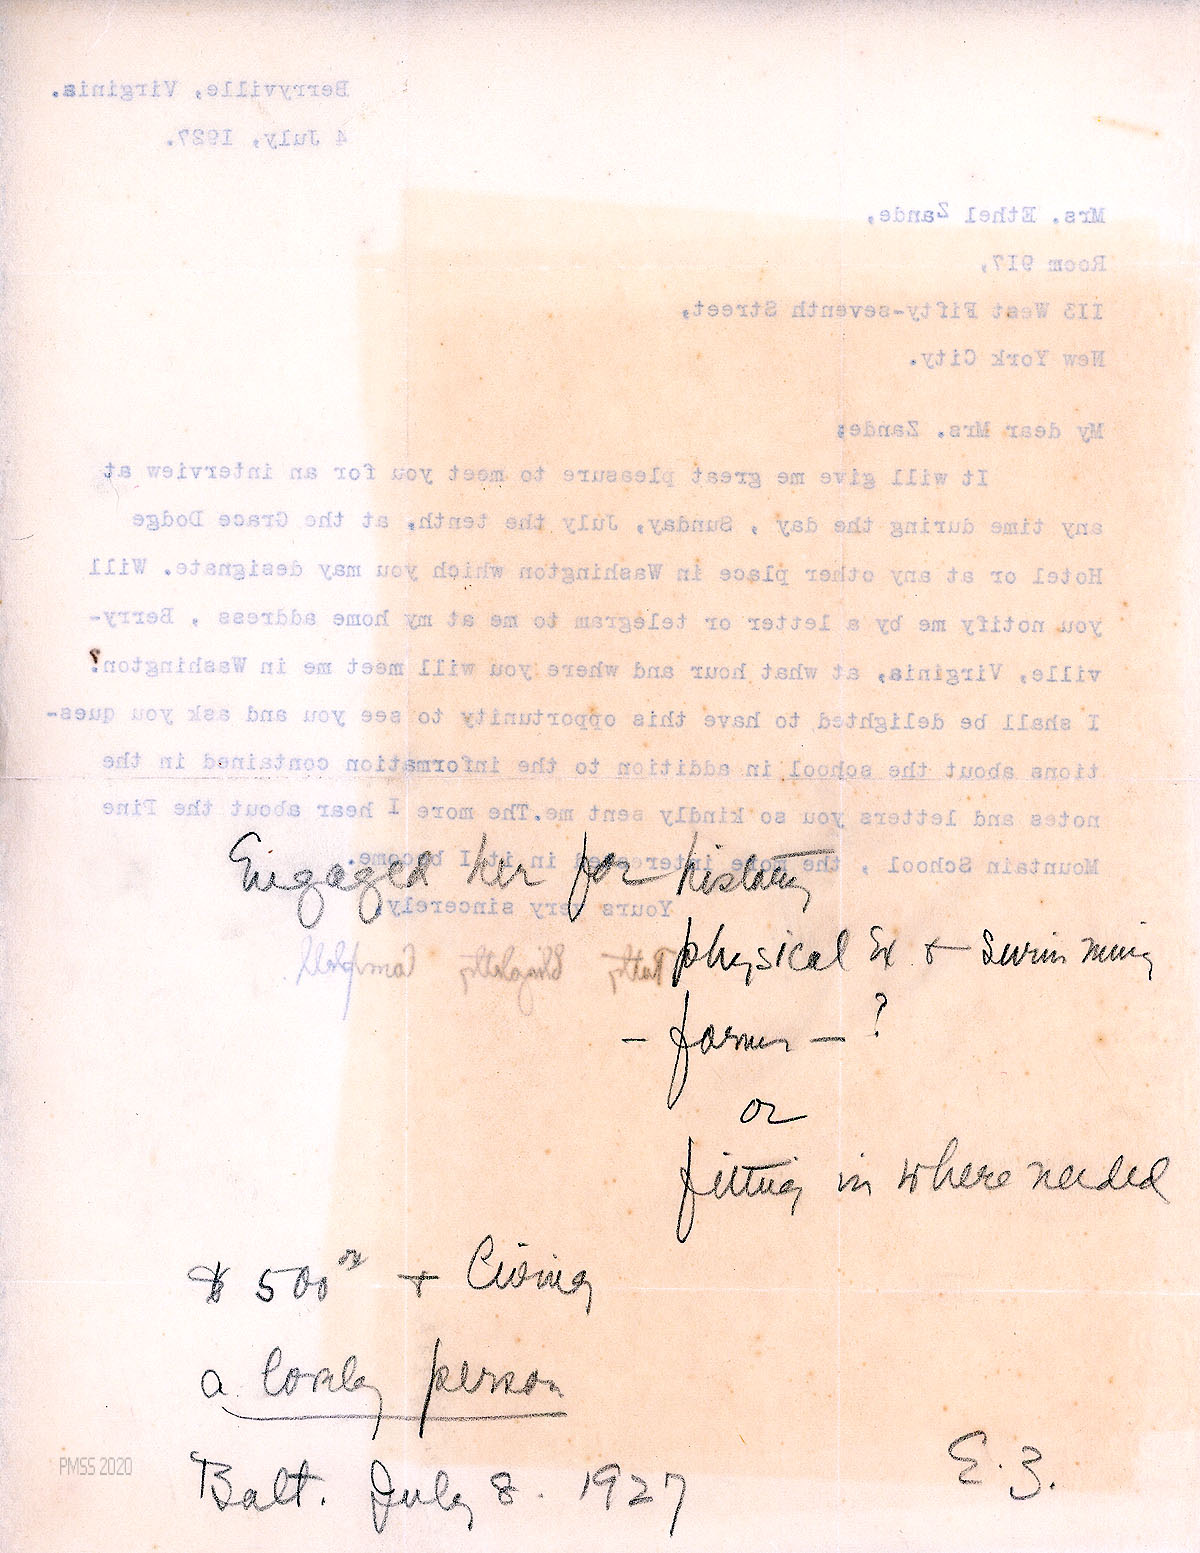 Berryville, Virginia.
4 July, I927.
Mrs. Ethel Zande,
Room 9I7,
II3 West Fifty-seventh Street,
New York City.
My dear Mrs. Zande;
It will give me great pleasure to meet you for an interview at
any time during the day , Sunday, July the tenth, at the Grace Dodge
Hotel or at any other place in Washington which you may designate. Will
you notify me by a letter or telegram to me at my home address , Berry-
ville, Virginia, at what hour and where you will meet me in Washington?
I shall be delighted to have this opportunity to see you and ask you ques-
tions about the school in addition to the information contained in the
notes and letters you so kindly sent me.The more I hear about the Pine
Mountain School , the more interested in it I become.
Yours very sincerely,
Campbell.
Engaged her for history
physical Ex + Swimming
- - ?
or
fitting in where needed
$ 500 00 + Living
a lovely person
Balt. July 8. 1927
E. Z.
PMSS 2020